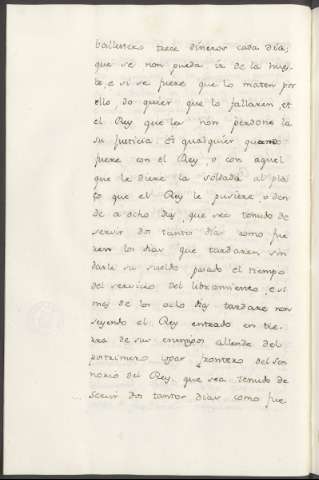 ballestero trece dineros cada día;
que se non pueda ir de la hues-
te e si se fuere que lo maten por
ello, do quier que lo fallaren, et
el Rey que les non perdone la
su justicia. Et qualquier quando
fuere con el Rey, o con aquel
que le diere la soldada al pla-
ço que el Rey le pusiere o den-
de a ocho días, que sea tenudo de
servir dos tanto días como fue
ren los días que tardaren, sin
darle su sueldo pasado el tiempo
del servicio del libramiento, e si
mes de los ocho días tardare non
seyendo el Rey entrado en tie-
rra de sus enemigos allende del
postrimero logar frontero del Sen-
norio del Rey, que sea tenudo de
servir dos tantos días como fue